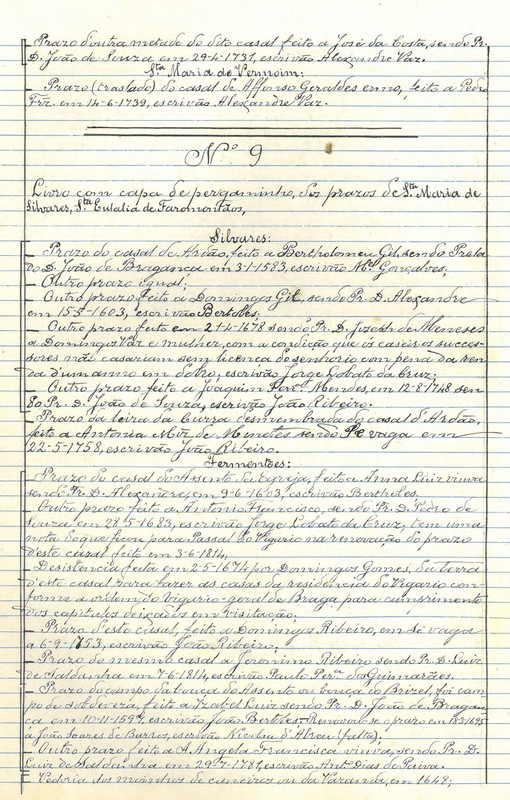 Prazo d'outra metade do dito casal feito a José da Costa, sendo Pr.
D. João de Souza em 29-4-1731, escrivão Alexandre Vaz.
Sta Maria de Vermoim:
Prazo (traslado) do casal de Affonso Geraldes ermo, feito a Pedro
Frz. em 14-6-1739, escrivão Alexandre Vaz.
Nº 9
Livro com capa de pergaminho, dos prazos de Sta Maria de
Silvares, Sta Eulalia de Faromontãos,
Silvares:
Prazo do casal de Ardão, feito a Bertholomeu Gil, sendo Prela
do D. João de Bragança em 3-1-1583, escrivão Mel Gonçalves;
Outro prazo egual;
Outro prazo feito a Domingos Gil, sendo Pr. D. Alexandre
em 15-5-1603, escrivão Bertholes;
Outro prazo feito em 21-4-1678 sendo Pr. D. José de Meneses
a Domingos Vaz e mulher, com a condição que os caseiros succes-
sores não casariam sem licença do senhorio com pena da ren
da d'um anno em dobro, escrivão Jorge Lobato da Cruz;
Outro prazo feito a Joaquim Mendes, em 12-8-1748 sen
do Pr. D. João de Souza, escrivão João Ribeiro.
Prazo da leira da Curza desmembrada do casal d'Ardão,
feito a Antonia de sendo Sé vaga em
22-5-1758, escrivão João Ribeiro.
Fermentões:
Prazo do casal do Assento da Egreja, feito a Anna Luiz viuva
sendo Pr. D. Alexandre, em 9-6-1603, escrivão Bertholes.
Outro prazo feito a Antonio Francisco, sendo Pr. D. Pedro de
Souza em 28-5-1683, escrivão Jorge Lobato da Cruz, tem uma
nota do que ficou para Passal do Vigario na renovação do prazo
d'este casal feito em 3-6-1814,
Desistencia feita em 2-5-1674 por Domingos Gomes, da terra
d'este casal para fazer as casas da residencia do Vigario con-
forme a ordem do vigario-geral de Braga para cumprimento
dos capitulos deixados em visitação;
Prazo d'este casal, feito a Domingos Ribeiro, em Sé vaga
a 6-9-1753, escrivão João Ribeiro;
Prazo do mesmo casal a Jeronimo Ribeiro sendo Pr. D. Luiz
de Saldanha em 7-6-1814, escrivão Paulo Pera dos Guimarães.
Prazo do campo da bouça do Assento ou bouça do Brizel, foi cam
po de sob deveza, feito a Izabel Luiz sendo Pr. D. João de Bragan
ça em 10-11-1597, escrivão João Bertoles. Renovou-se o prazo em 18-2-1695
a João Soares de Barros, escrivão Nicolau d'Abreu (falta).
Outro prazo feito a Angela Francisca viuva, sendo Pr. D.
Luiz de Saldanha em 29-7-1781, escrivão Anto Dias de Paiva.
Vedoria dos moinhos de caneiros ou da Varanda, em 1648;